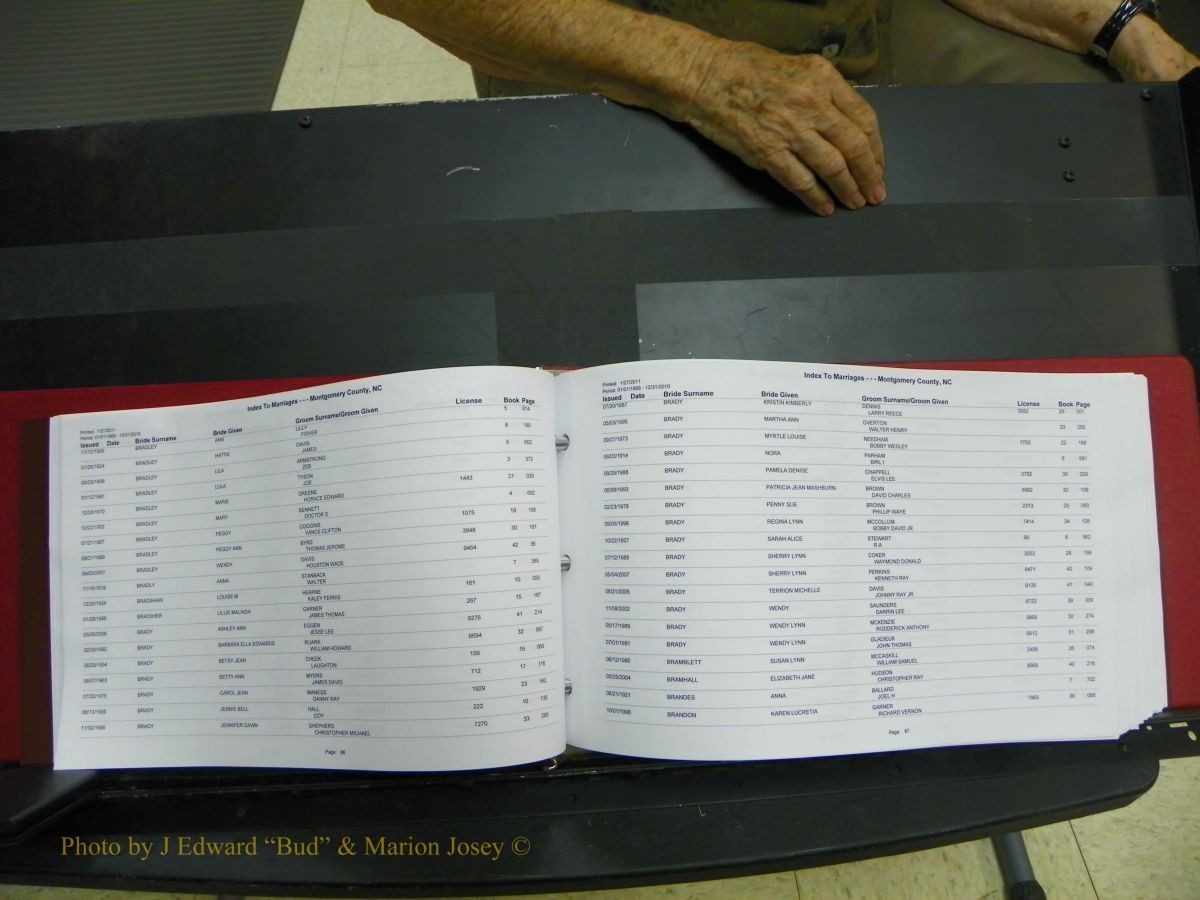 Index To Marriages - - - Montgomery County, NC
Printed: 1/27/2011
Period: 01/01/1868 - 12/31/2010
Issued Date Bride Surname Bride Given Groom Surname/Groom Given License Book Page
BRADLEY ANN LILLY 5 614
FISHER
BRADLEY HATTIE DAVIS 8 180
JAMES
BRADLEY LILA ARMSTRONG 5 652
ZEB
BRADLEY LULA TYSON 3 373
JOE
BRADLEY MARIE GREENE 1443 21 035
HORACE EDWARD
BRADLEY MARY BENNETT 4 692
DOCTOR S
BRADLEY PEGGY COGGINS 1075 19 108
VANCE CLIFTON
BRADLEY PEGGY ANN BYRD 3948 30 181
THOMAS JEROME
BRADLEY WENDY DAVIS 9454 42
HOUSTON WADE
BRADLY ANNA STANBACK 7 355
WALTER
BRADSHAW LOUISE M HEARNE 161 10 050
KALEY FERRIS
BRADSHER LILLIE MALINDA GARNER 267 15 187
JAMES THOMAS
BRADY ASHLEY ANN EGGEN 9276 41 214
JESSE LEE
BRADY BARBARA ELLA EDWARDS RUARK 6694 32 097
WILLIAM HOWARD
BRADY BETSY JEAN CHEEK 159 15
LAUGHTON
BRADY BETTY ANN MYERS 712 17 116
JAMES DAVID
BRADY CAROL JEAN MANESS 1929 23 162
DANNY RAY
BRADY JENNIE BELL HALL 222 10 135
COY
BRADY JENNIFER DAWN SHEPHERD 7270 33 285
CHRISTOPHER MICHAEL
Page: 86
Index To Marriages - - - Montgomery County, NC
Printed: 1/27/2011
Period: 01/01/1868 - 12/31/2010
Issued Date Bride Surname Bride Given Groom Surname/Groom Given License Book Page
07/20/1987 BRADY KRISTIN KIMBERLY DENNIS 3582 29 201
LARRY REECE
05/03/1995 BRADY MARTHA ANN OVERTON 33 255
WALTER HENRY
09/27/1973 BRADY MYRTLE LOUISE NEEDHAM 1750 22 188
BOBBY WESLEY
06/03/1914 BRADY NORA PARHAM 6 661
BIRL I
09/29/1988 BRADY PAMELA DENISE CHAPPELL 3782 30 029
ELVIS LEE
08/08/1993 BRADY PATRICIA JEAN MASHBURN BROWN 6882 32 138
DAVID CHARLES
02/23/1979 BRADY PENNY SUE BROWN 2313 25 093
PHILLIP WAYE
09/05/1996 BRADY REGINA LYNN MCCOLLUM 7414 34 128
BOBBY DAVID JR
10/22/1927 BRADY SARAH ALICE STEWART 90 8 562
R A
07/12/1985 BRADY SHERRY LYNN COKER 3252 28 199
WAYMOND DONALD
05/04/2007 BRADY SHERRY LYNN PERKINS 9471 42 109
KENNETH RAY
06/21/2005 BRADY TERRION MICHELLE DAVIS 9135 41 040
JOHNNY RAY JR
11/08/2002 BRADY WENDY SAUNDERS 8722 39 339
DARRIN LEE
05/17/1989 BRADY WENDY LYNN MCKENZIE 3869 30 274
RODDERICK ANTHONY
07/01/1991 BRADY WENDY LYNN GLADIEUX 6612 31 206
JOHN THOMAS
06/12/1980 BRAMBLETT SUSAN LYNN MCCASKILL 2459 26 074
WILLIAM SAMUEL
05/25/2004 BRAMHALL ELIZABETH JANE HUDSON 8965 40 218
CHRISTOPHER RAY
08/21/1921 BRANDES ANNA BALLARD 7 702
JOEL H
10/01/1998 BRANDON KAREN LUCRETIA GARNER 7893 36 068
RICHARD VERNON
Page: 87
Photo by J Edward “Bud” & Marion Josey ©